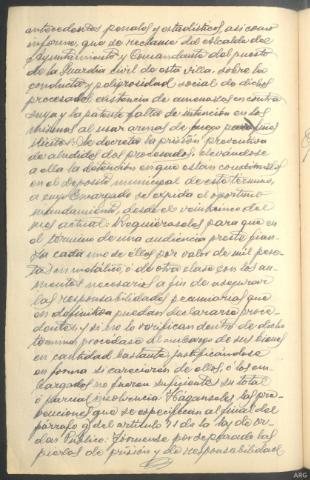 antecedentes penales y estadisticos, asi como
informe, que se reclama del Alcalde de
Ayuntamiento y Comandante del puesto
de la Guardia civil de esta villa, sobre la
conducta y peligrosidad social de dichos
procesados, existencia de amenazas en contra
suya y la patente falta de intención en los
mismos al usar armas de fuego para fines
ilicitos. Se decreta la prisión provisional
de aludidos dos procesados, elevándose
a ella la detención en que estan constituidos
en el deposito municipal de este termino,
a cuyo Encargado se expida el oportuno
mandamiento, desde el veintiuno del
mes actual. Requierasoles para que en
el término de una audiencia preste fian-
za cada uno de ellos por valor de mil pese-
tas en metalico, o de otra clase con los au-
mentos necesarios a fin de asegurar
las responsabilidades pecuniarias que
en definitiva puedan declararse proce-
dentes, y si no lo verifican dentro de dicho
termino procedase al embargo de sus bienes
en cantidad bastante, justificándose
en forma si carecieran de ellos, o los em-
bargados no fueran suficientes su total
o parcial insolvencia. Haganseles las pre-
venciones que se especifican al final del
párrafo g) del articulo 71 de la ley de or-
den Público. Formense por separado las
piezas de prisión y de responsabilidad
ARG